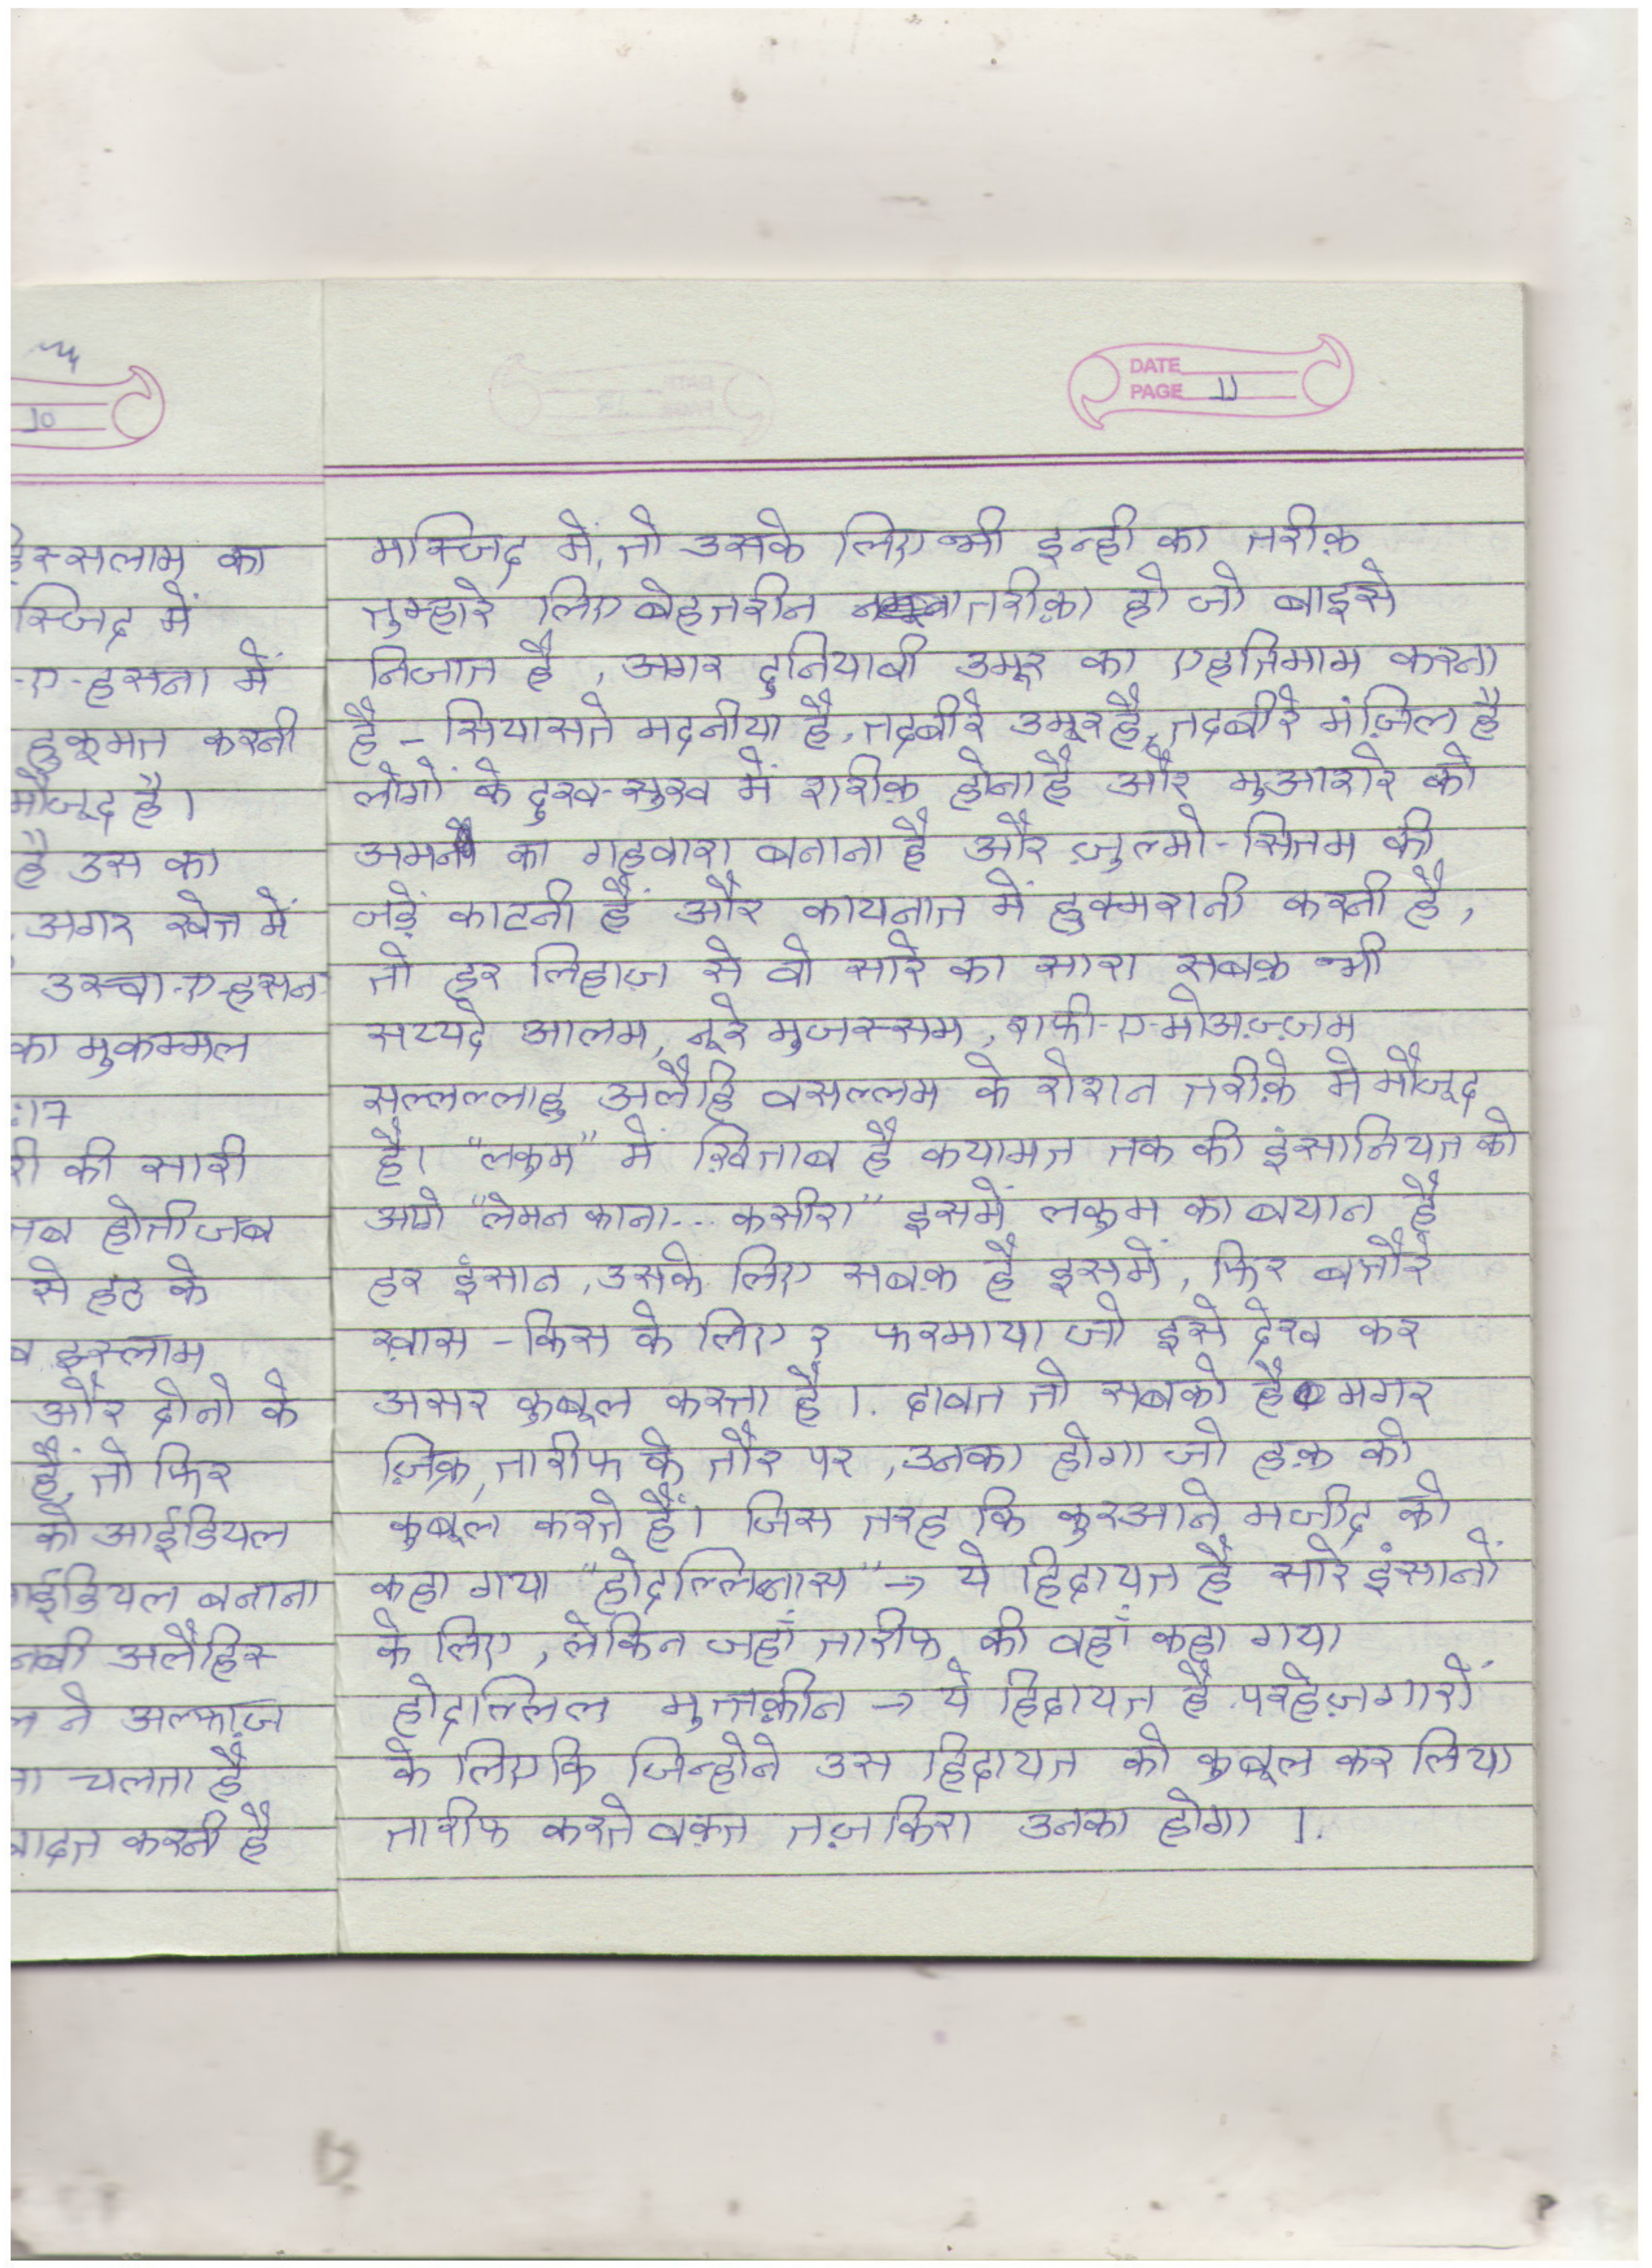 10
DATE
PAGE 11
स्सलाम का
स्जिद में
-ए-हसना में
हुकूमत करनी
मौजूद है।
है उस का
अगर खेत में
उस्वा-ए-हसन
का मुकम्मल
:17
री की सारी
तब होती जब
से हट के
व इस्लाम
और दोनो के
हैं, तो फिर
को आईडियल
आईडियल बनाना
नबी अलैहिस
ने अल्फाज़
ता चलता है
बादत करनी है
मस्जिद में, तो उसके लिए भी इन्ही का तरीक़
तुम्हारे लिए बेहतरीन तरीक़ा हो जो बाइसे
निजात है, अगर दुनियावी उमूर का एहतिमाम करना
है - सियासते मदनीया है, तदबीरे उमूर है, तदबीरे मंज़िल है
लोगों के दुख-सुख में शरीक़ होना है और मुआशरे को
अमन का गहवारा बनाना है और ज़ुल्मो-सितम की
जड़ें काटनी हैं और कायनात में हुक्मरानी करनी है,
तो हर लिहाज़ से वो सारे का सारा सबक़ भी
सय्यदे आलम, नूरे मुजस्सम, शफी-ए-मोअज़्ज़म
सल्लल्लाहु अलैहि वसल्लम के रोशन तरीक़े मे मौजूद
है। "लकुम" में ख़िताब है कयामत तक की इंसानियत को
आगे "लेमन काना... कसीरा" इसमें लकुम का बयान है
हर इंसान, उसके लिए सबक़ है इसमें, फिर बतौरे
ख़ास - किस के लिए? फरमाया जो इसे देख कर
असर कुबूल करता है।. दावत तो सबको है मगर
ज़िक्र, तारीफ के तौर पर, उनका होगा जो हक़ को
कुबूल करते हैं। जिस तरह कि कुरआने मजीद को
कहा गया "होदल्लिन्नास" → ये हिदायत है सारे इंसानों
के लिए, लेकिन जहाँ तारीफ की वहाँ कहा गया
होदल्लिल मुत्तक़ीन → ये हिदायत है परहेज़गारों
के लिए कि जिन्होने उस हिदायत को कुबूल कर लिया
तारीफ करते वक़्त तज़किरा उनका होगा ।.